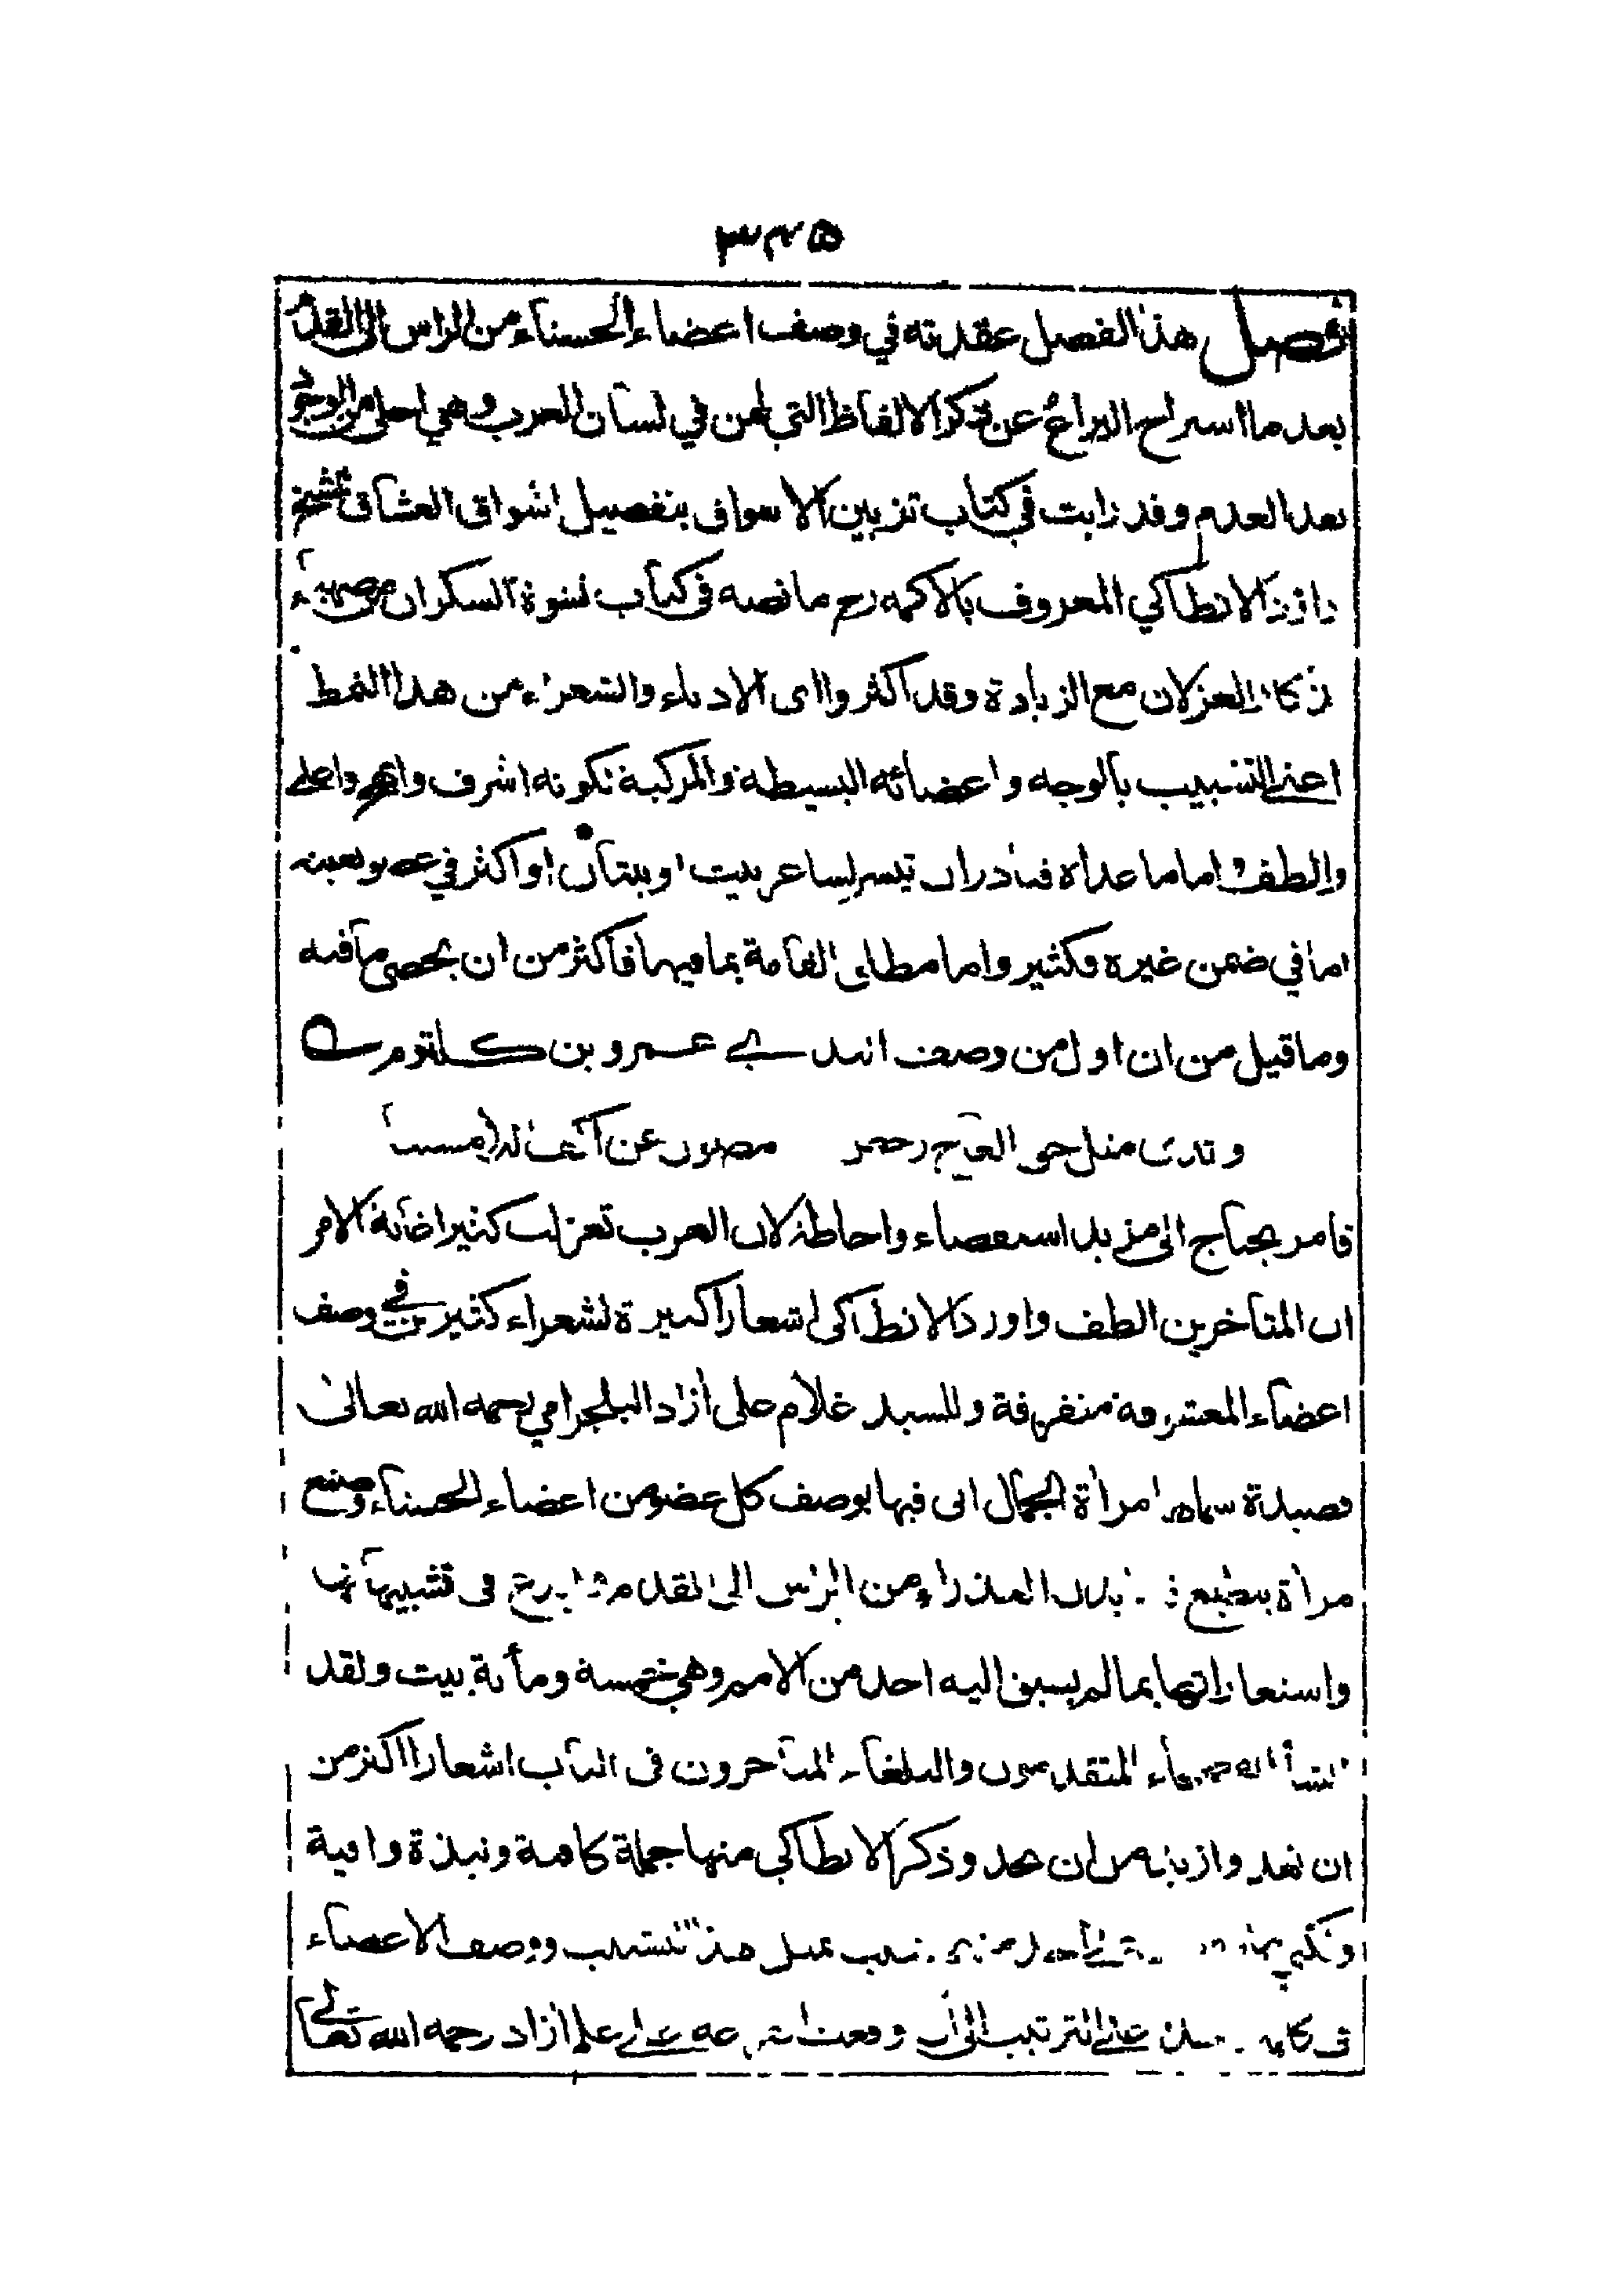 ٣٢٥
فصل هذا الفصل عقدته في وصف اعضاء الحسناء من الراس الى القدم
بعد ما استراح اليراع عن ذكر الالفاظ التي لهن في لسان العرب وهي احلى من الوجود
بعد العدم وقد رايت في كتاب تزيين الاسواق بتفصيل اشواق العشاق للشيخ
داؤد الانطاكي المعروف بالاكمه رح ما نصه في كتاب نشوة السكران من صهباء
تذكار الغزلان مع الزيادة وقد اكثروا اى الادباء والشعراء من هذا النمط
اعنى التشبيب بالوجه واعضائه البسيطة والمركبة لكونه اشرف واعلى
والطف واما ما عداه فنادرات تيسر لشاعر بيت او بيتان او اكثر في عضو بعينه
اما في ضمن غيره فكثير واما مطلق القامة بما فيها فاكثر من ان يحصى ما فيه
وما قيل من ان اول من وصف الثدي عمرو بن كلثوم
وثديا مثل حق العاج رخص مصون عن اكف اللامسينا
فامر يحتاج الى مزيد استقصاء واحاطة لان العرب تغزلت كثيرا غاية الامر
ان المتاخرين الطف واورد الانطاكي اشعارا كثيرة لشعراء كثيرين في وصف
اعضاء المعشوقة متفرقة وللسيد غلام على أزاد البلجرامي رحمه الله تعالى
قصيدة سماها مرأة الجمال اتى فيها بوصف كل عضو من اعضاء الحسناء وصنع
مرأة ينطبع فيها بدن العذراء من الرأس الى القدم رح في تشبيهاتها
واستعاراتها بما لم يسبق اليه احد من الامم وهي خمسة ومأية بيت ولقد
انشأ الفصحاء المتقدمون والبلغاء المتأخرون في الباب اشعارا اكثر من
ان تعد وازيد من ان تحد وذكر الانطاكي منها جملة كافية ونبذة وافية
ولكن التشبيب ووصف الاعضاء
في على الترتيب الى أزاد رحمه الله تعالى